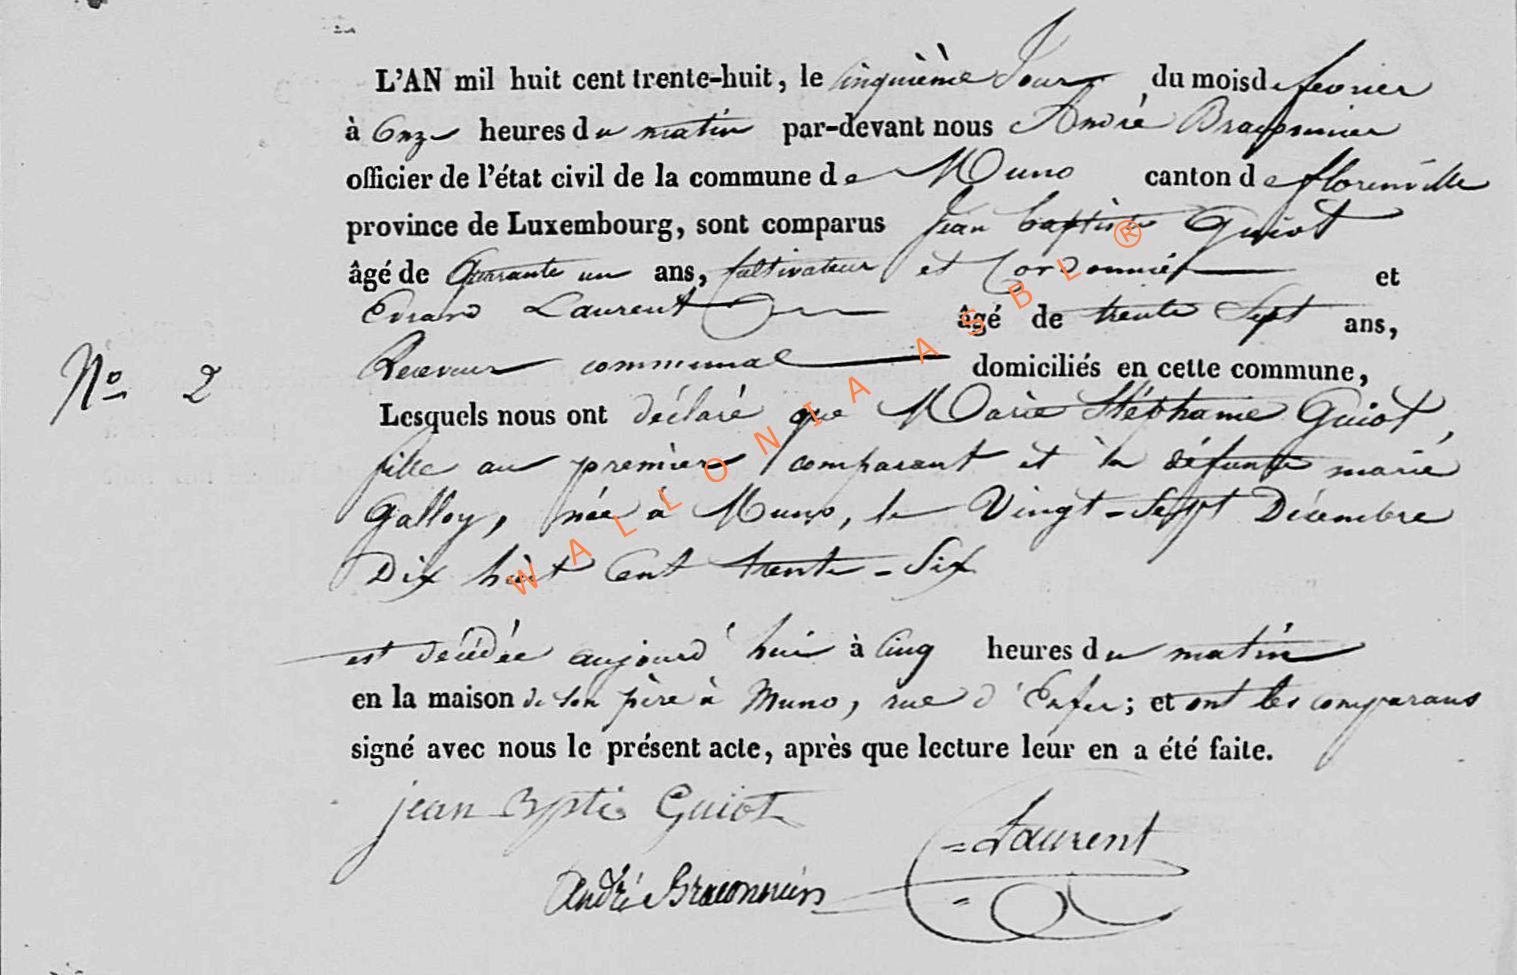 L'AN mil huit cent trente-huit, le cinquième Jour du mois de fevrier
à Onze heures du matin par-devant nous André Braconnier
officier de l'état civil de la commune de Muno canton de florenville
province de Luxembourg, sont comparus Jean baptiste Guiot
âgé de Quarante un ans, Cultivateur et Cordonnier et
Evrard Laurent âgé de trente Sept ans,
Receveur communal domiciliés en cette commune,
N° 2
Lesquels nous ont déclaré que Marie Stéphanie Guiot,
fille au premier comparant et à la défunte marie
Galloy, née à Muno, le Vingt-Sept Décembre
Dix huit Cent trente-Six
est décédée aujourd'hui à Cinq heures du matin
en la maison de son père à Muno, rue d'Enfer; et ont les comparans
signé avec nous le présent acte, après que lecture leur en a été faite.
jean Bpte Guiot
=Laurent
André Braconnier
WALLONIA ASBL®